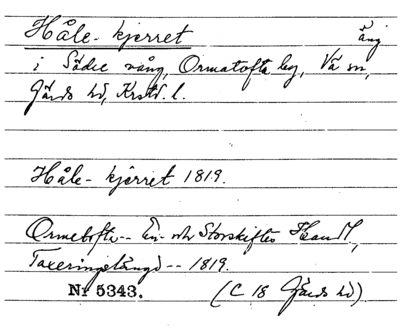 Håle-kjerret äng
i Södre vång, Ormatofta by, Vä sn,
Gärds hd, Krstd. l.
Håle-kjerret 1819.
Ormetofte -- En- och Storskiftes Handl,
Taxeringslängd -- 1819.
Nr 5343. (C 18 Gärds hd)